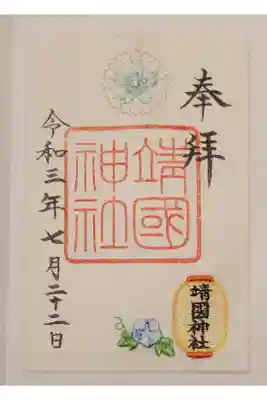 奉拝
靖國神社
靖國神社
令和三年七月二十二日